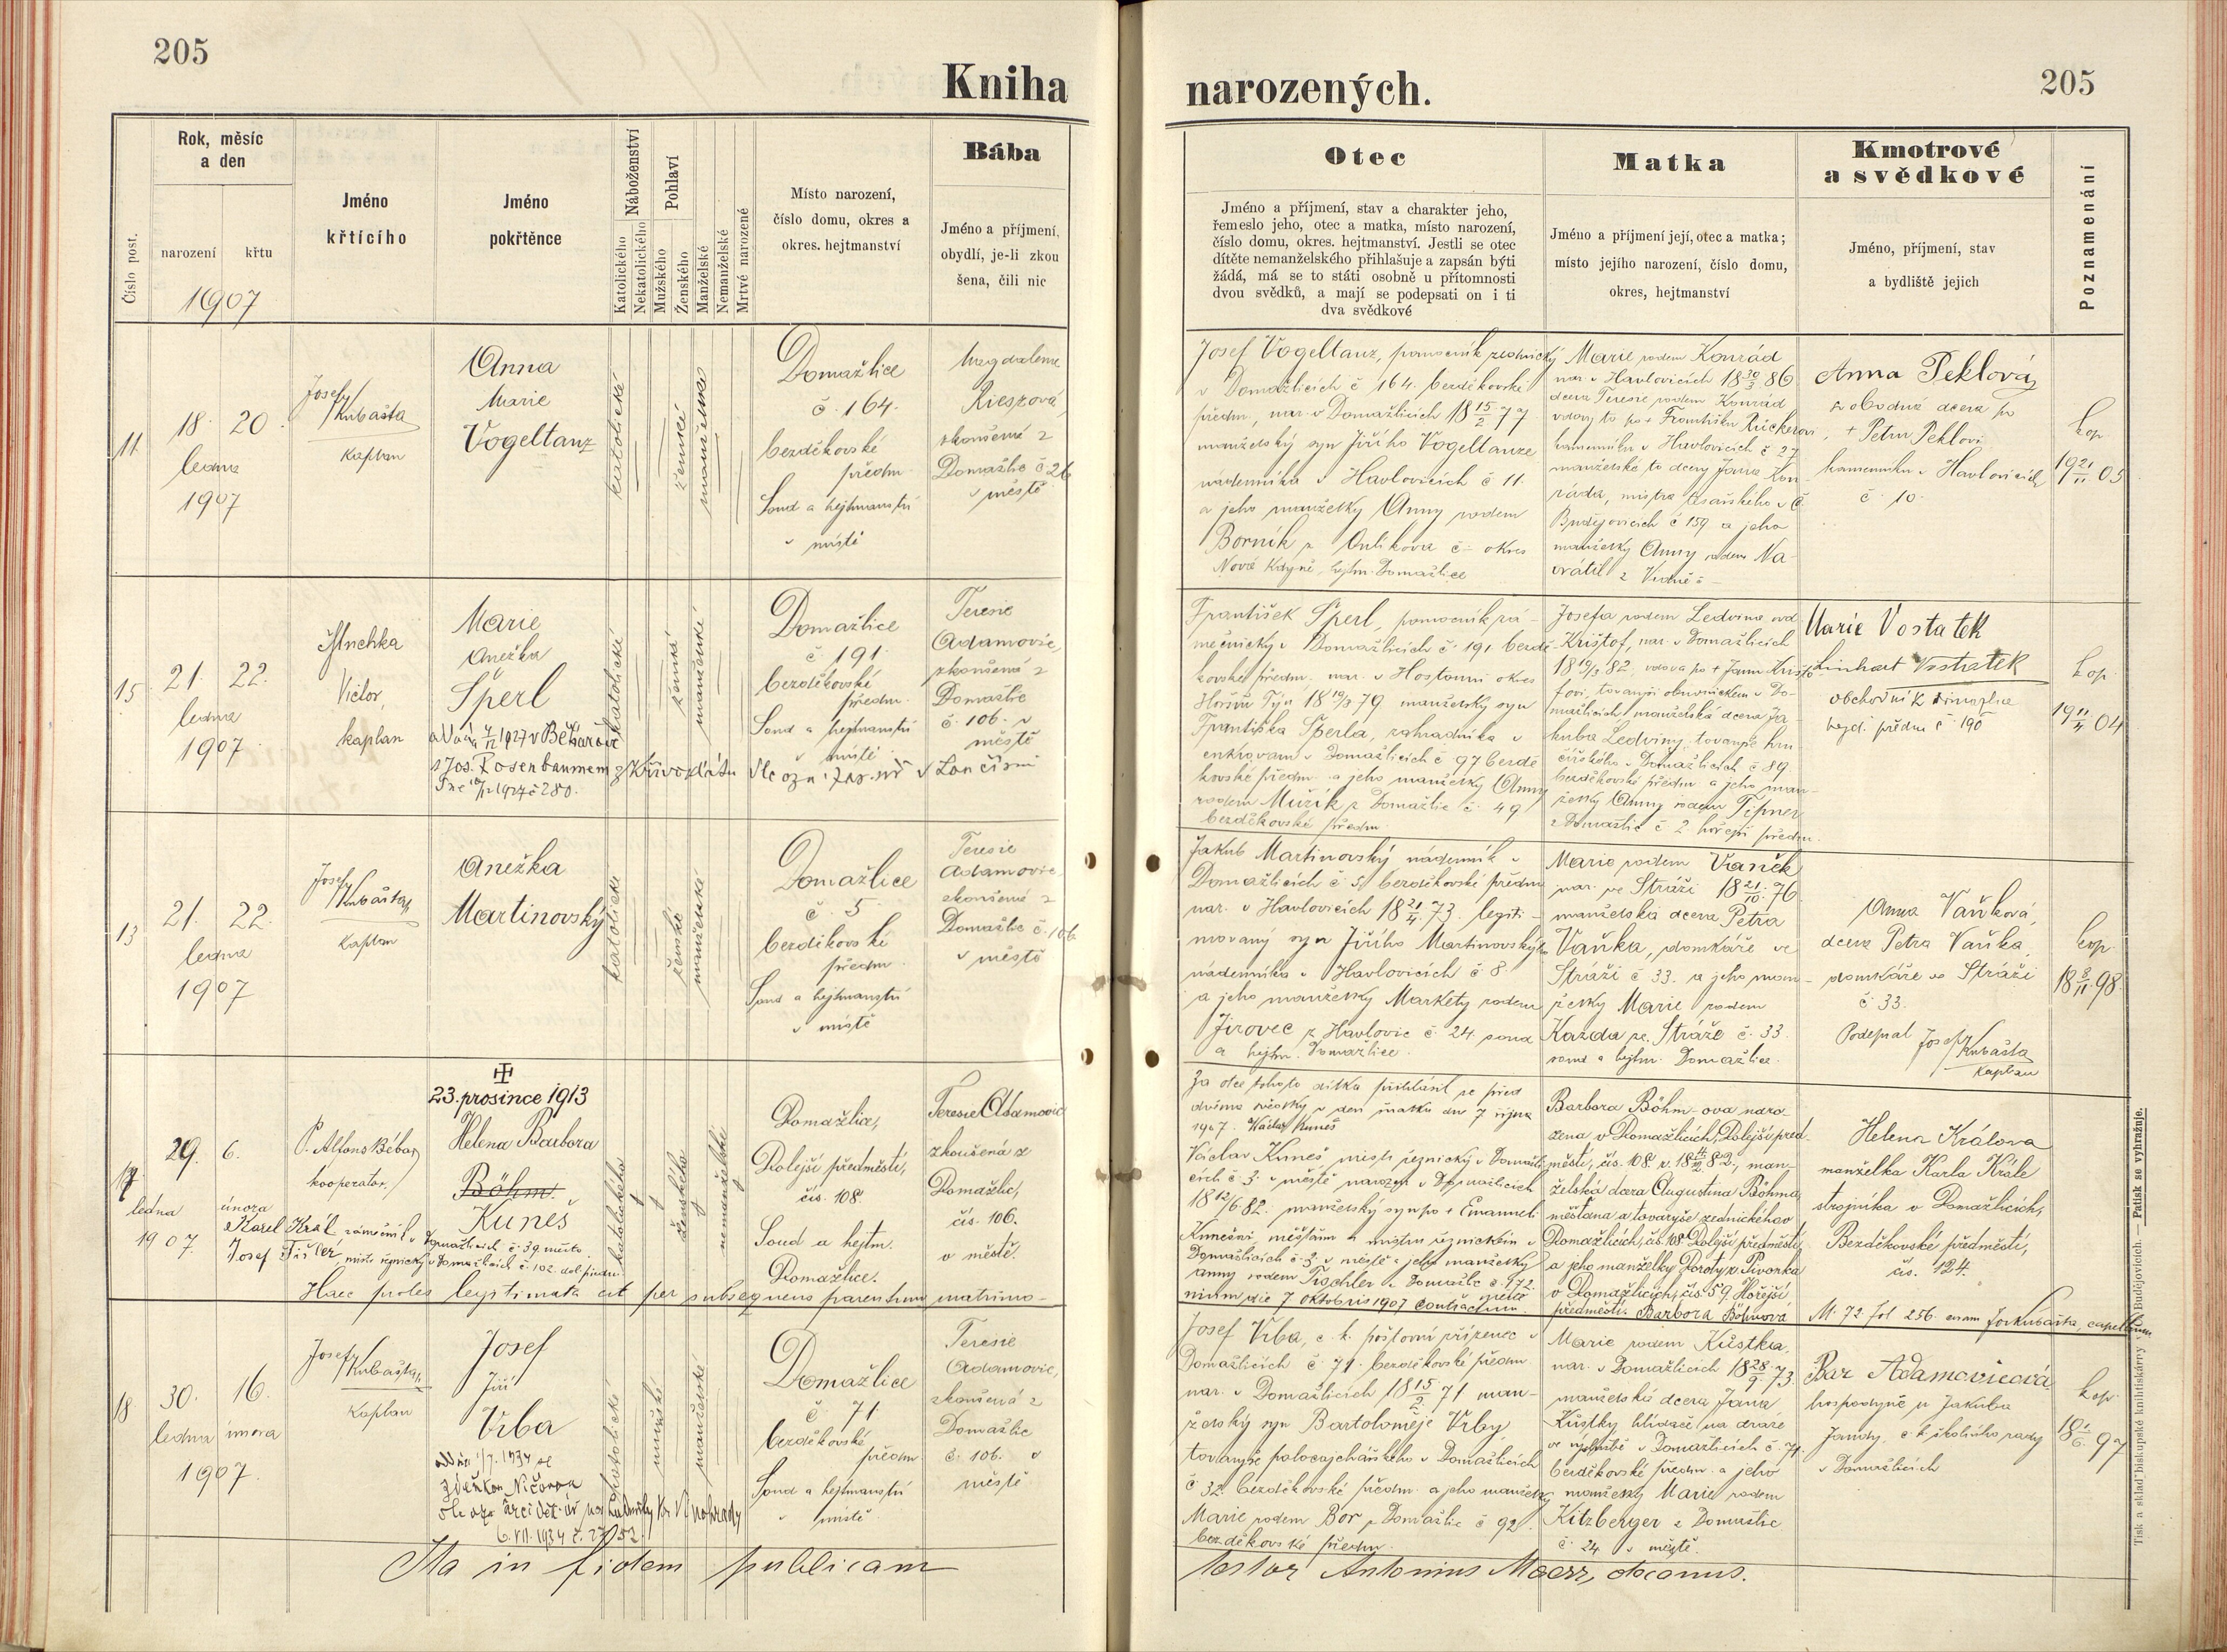 205
Kniha
narozených.
205
Číslo post.
Rok, měsíc
a den
narození
křtu
1907
Jméno
křtícího
Jméno
pokřtěnce
Náboženství
Katolického
Nekatolického
Pohlaví
Mužského
Ženského
Manželské
Nemanželské
Mrtvé narozené
Místo narození,
číslo domu, okres a
okres. hejtmanství
Bába
Jméno a příjmení,
obydlí, je-li zkou
šena, čili nic
Otec
Jméno a příjmení, stav a charakter jeho,
řemeslo jeho, otec a matka, místo narození,
číslo domu, okres. hejtmanství. Jestli se otec
dítěte nemanželského přihlašuje a zapsán býti
žádá, má se to státi osobně u přítomnosti
dvou svědků, a mají se podepsati on i ti
dva svědkové
Matka
Jméno a příjmení její, otec a matka;
místo jejího narození, číslo domu,
okres, hejtmanství
Kmotrové
a svědkové
Jméno, příjmení, stav
a bydliště jejich
Poznamenání
11.
18. 20.
ledna
1907
Josef Kubašta
kaplan
Anna
Marie
Vogeltanz
katolické
ženské
manželské
Domažlice
č. 164.
bezděkovské
předm.
Soud a hejtmanství
v místě
Magdalena
Rieszová
zkoušená z
Domažlic č. 26
v městě
Josef Vogeltanz, pomocník zednický
v Domažlicích č 164. bezděkovské
předm., nar. v Domažlicích 18 15/2 77
manželský syn Jiřího Vogeltanze
nádenníka v Havlovicích č 11.
a jeho manželky Anny rodem
Borník z č. okres
Nová Kdyně, hejtm. Domažlice
Marie rodem Konrád
nar. v Havlovicích 18 30/3 86
dcera Teresie rodem Konrád
vdovy to po + Františku Rückerovi,
kameníku v Havlovicích č 27
manželské to dcery Jana Kon-
ráda, mistra tesařského v Č.
Budějovicích č 159 a jeho
manželky Anny rodem Na-
vrátil z Vídně
Anna Peklová
svobodná dcera po
+ Petru Peklovi
kameníku v Havlovicích
č. 10.
kop.
19 21/11 05
15
21. 22.
ledna
1907
Jílnehka
Victor,
kaplan
Marie
Anežka
Šperl
katolické
ženské
manželské
Domažlice
č. 191
bezděkovské
předm.
Soud a hejtmanství
v místě
Teresie
Adamovic,
zkoušená z
Domažlic
č. 106. v
městě
s Jos. Rosenbaumem z Křivoklátu
František Šperl, pomocník zá-
mečnický v Domažlicích č. 191 bezdě-
kovské předm. nar. v Hostouni okres
Horšův Týn 18 19/3 79 manželský syn
Františka Šperla, zahradníka v
v Domažlicích č 97 bezdě-
kovské předm. a jeho manželky Anny
rodem Mužík z Domažlic č. 49
bezděkovské předm.
Josefa rodem Ledvina vd.
Krištof, nar. v Domažlicích
18 19/3 82, vdova po + Janu Krišto-
fovi, tovaryši obuvnickém v Do-
mažlicích, manželská dcera Ja-
kuba Ledviny, tovaryše hrn-
čířského v Domažlicích č 89.
bezděkovské předm. a jeho man-
želky Anny rodem Tipner
z Domažlic č 2 hořejší předm.
Marie Vostatek
Linhart Vostatek
bezd. předm. č 190
kop.
19 11/4 04
13
21. 22.
ledna
1907
Josef Kubašta,
kaplan
Anežka
Martinovský
katolické
ženské
manželské
Domažlice
č. 5
bezděkovské
předm.
Soud a hejtmanství
v místě
Teresie
Adamovic,
zkoušená z
Domažlic č. 106
v městě
Jakub Martinovský nádenník v
Domažlicích č. 5. bezděkovské předm.
nar. v Havlovicích 18 21/4 73. legiti-
movaný syn Jiřího Martinovského
nádenníka v Havlovicích č 8.
a jeho manželky Markéty rodem
Jírovec z Havlovic č 24 soud
a hejtm. Domažlice.
Marie rodem Vaněk
nar. ve Stráži 18 21/10 76
manželská dcera Petra
Vaňka, domkáře ve
Stráži č 33. a jeho man-
želky Marie rodem
Kazda ze Stráže č. 33
soud a hejtm. Domažlice.
Anna Vaňková,
dcera Petra Vaňka
domkáře ve Stráži
č 33.
Podepsal Josef Kubašta
kaplan
kop.
18 8/11 98
17.
29. 6.
ledna února
1907.
P. Alfons Bébar,
kooperator.
23. prosince 1913
Helena Barbora
Böhm.
Kuneš
katolického
ženského
nemanželské
Domažlice,
Dolejší předměstí,
čís. 108
Soud a hejtm.
Domažlice.
Teresie Adamovic
zkoušená z
Domažlic,
čís. 106.
v městě.
Karel Král zámečník v Domažlicích č. 39 město
Josef Tišler, mistr řeznický v Domažlicích č. 102. dol. předm.
Haec proles legitimata est per subsequens parentum matrimo-
nium die 7 oktobris 1907 contractum.
Za otce tohoto dítka přihlásil se před
dvěma svědky v den sňatku dne 7 října
1907. Václav Kuneš
Václav Kuneš mistr řeznický v Domažli-
cích č 3. v městě narozen v Domažlicích
18 12/6 82. manželský syn po + Emanueli
Kunešovi, měšťanu a mistru řeznickém v
Domažlicích č 3. v městě a jeho manželky
Anny rodem Tischler z Domažlic č. 172
městě
Barbora Böhm-ova naro-
zena v Domažlicích, Dolejší před-
městí, čís. 108 r. 18 4/12 82, man-
želská dcera Augustina Böhma,
měšťana a tovaryše zednického v
Domažlicích, čís. 108 Dolejší předměstí,
a jeho manželky Doroty r. Pivonka
v Domažlicích, čís. 59. Hořejší
předměstí. Barbora Böhmová
Helena Králova
manželka Karla Krále
strojníka v Domažlicích,
Bezděkovské předměstí,
čís. 124.
M. 72 fol 256. coram Jos. Kubašta, capellanum
18
30. 16.
ledna února
1907.
Josef Kubašta,
kaplan
Josef
Jiří
Vrba
oddán 1/7. 1934 se
Zdeňkou Ničovou
6. VII. 1934 č.
katolické
mužské
manželské
Domažlice
č 71
bezděkovské
předm.
Soud a hejtmanství
v místě
Teresie
Adamovic,
zkoušená z
Domažlic
č. 106. v
městě
Josef Vrba, c. k. poštovní zřízenec v
Domažlicích č 71. bezděkovské předm.
nar. v Domažlicích 18 15/2 71 man-
želský syn Bartoloměje Vrby
tovaryše v Domažlicích
č 32. bezděkovské předm. a jeho manželky
Marie rodem Bor z Domažlic č 92.
bezděkovské předm.
Marie rodem Kůstka,
nar. v Domažlicích 18 28/9 73.
manželská dcera Jana
Kůstky hlídače na dráze
ve výslužbě v Domažlicích č. 71.
bezděkovské předm. a jeho
manželky Marie rodem
Kitzberger z Domažlic
č 24 v městě.
Bar Adamovicová
hospodyně u Jakuba
Jandy, c. k. školního rady
v Domažlicích
kop.
18 1/6 97
Ita in fidem publicam
testor Antonius Maerz, decanus.
Tisk a sklad biskupské knihtiskárny v Budějovicích. — Patisk se vyhražuje.